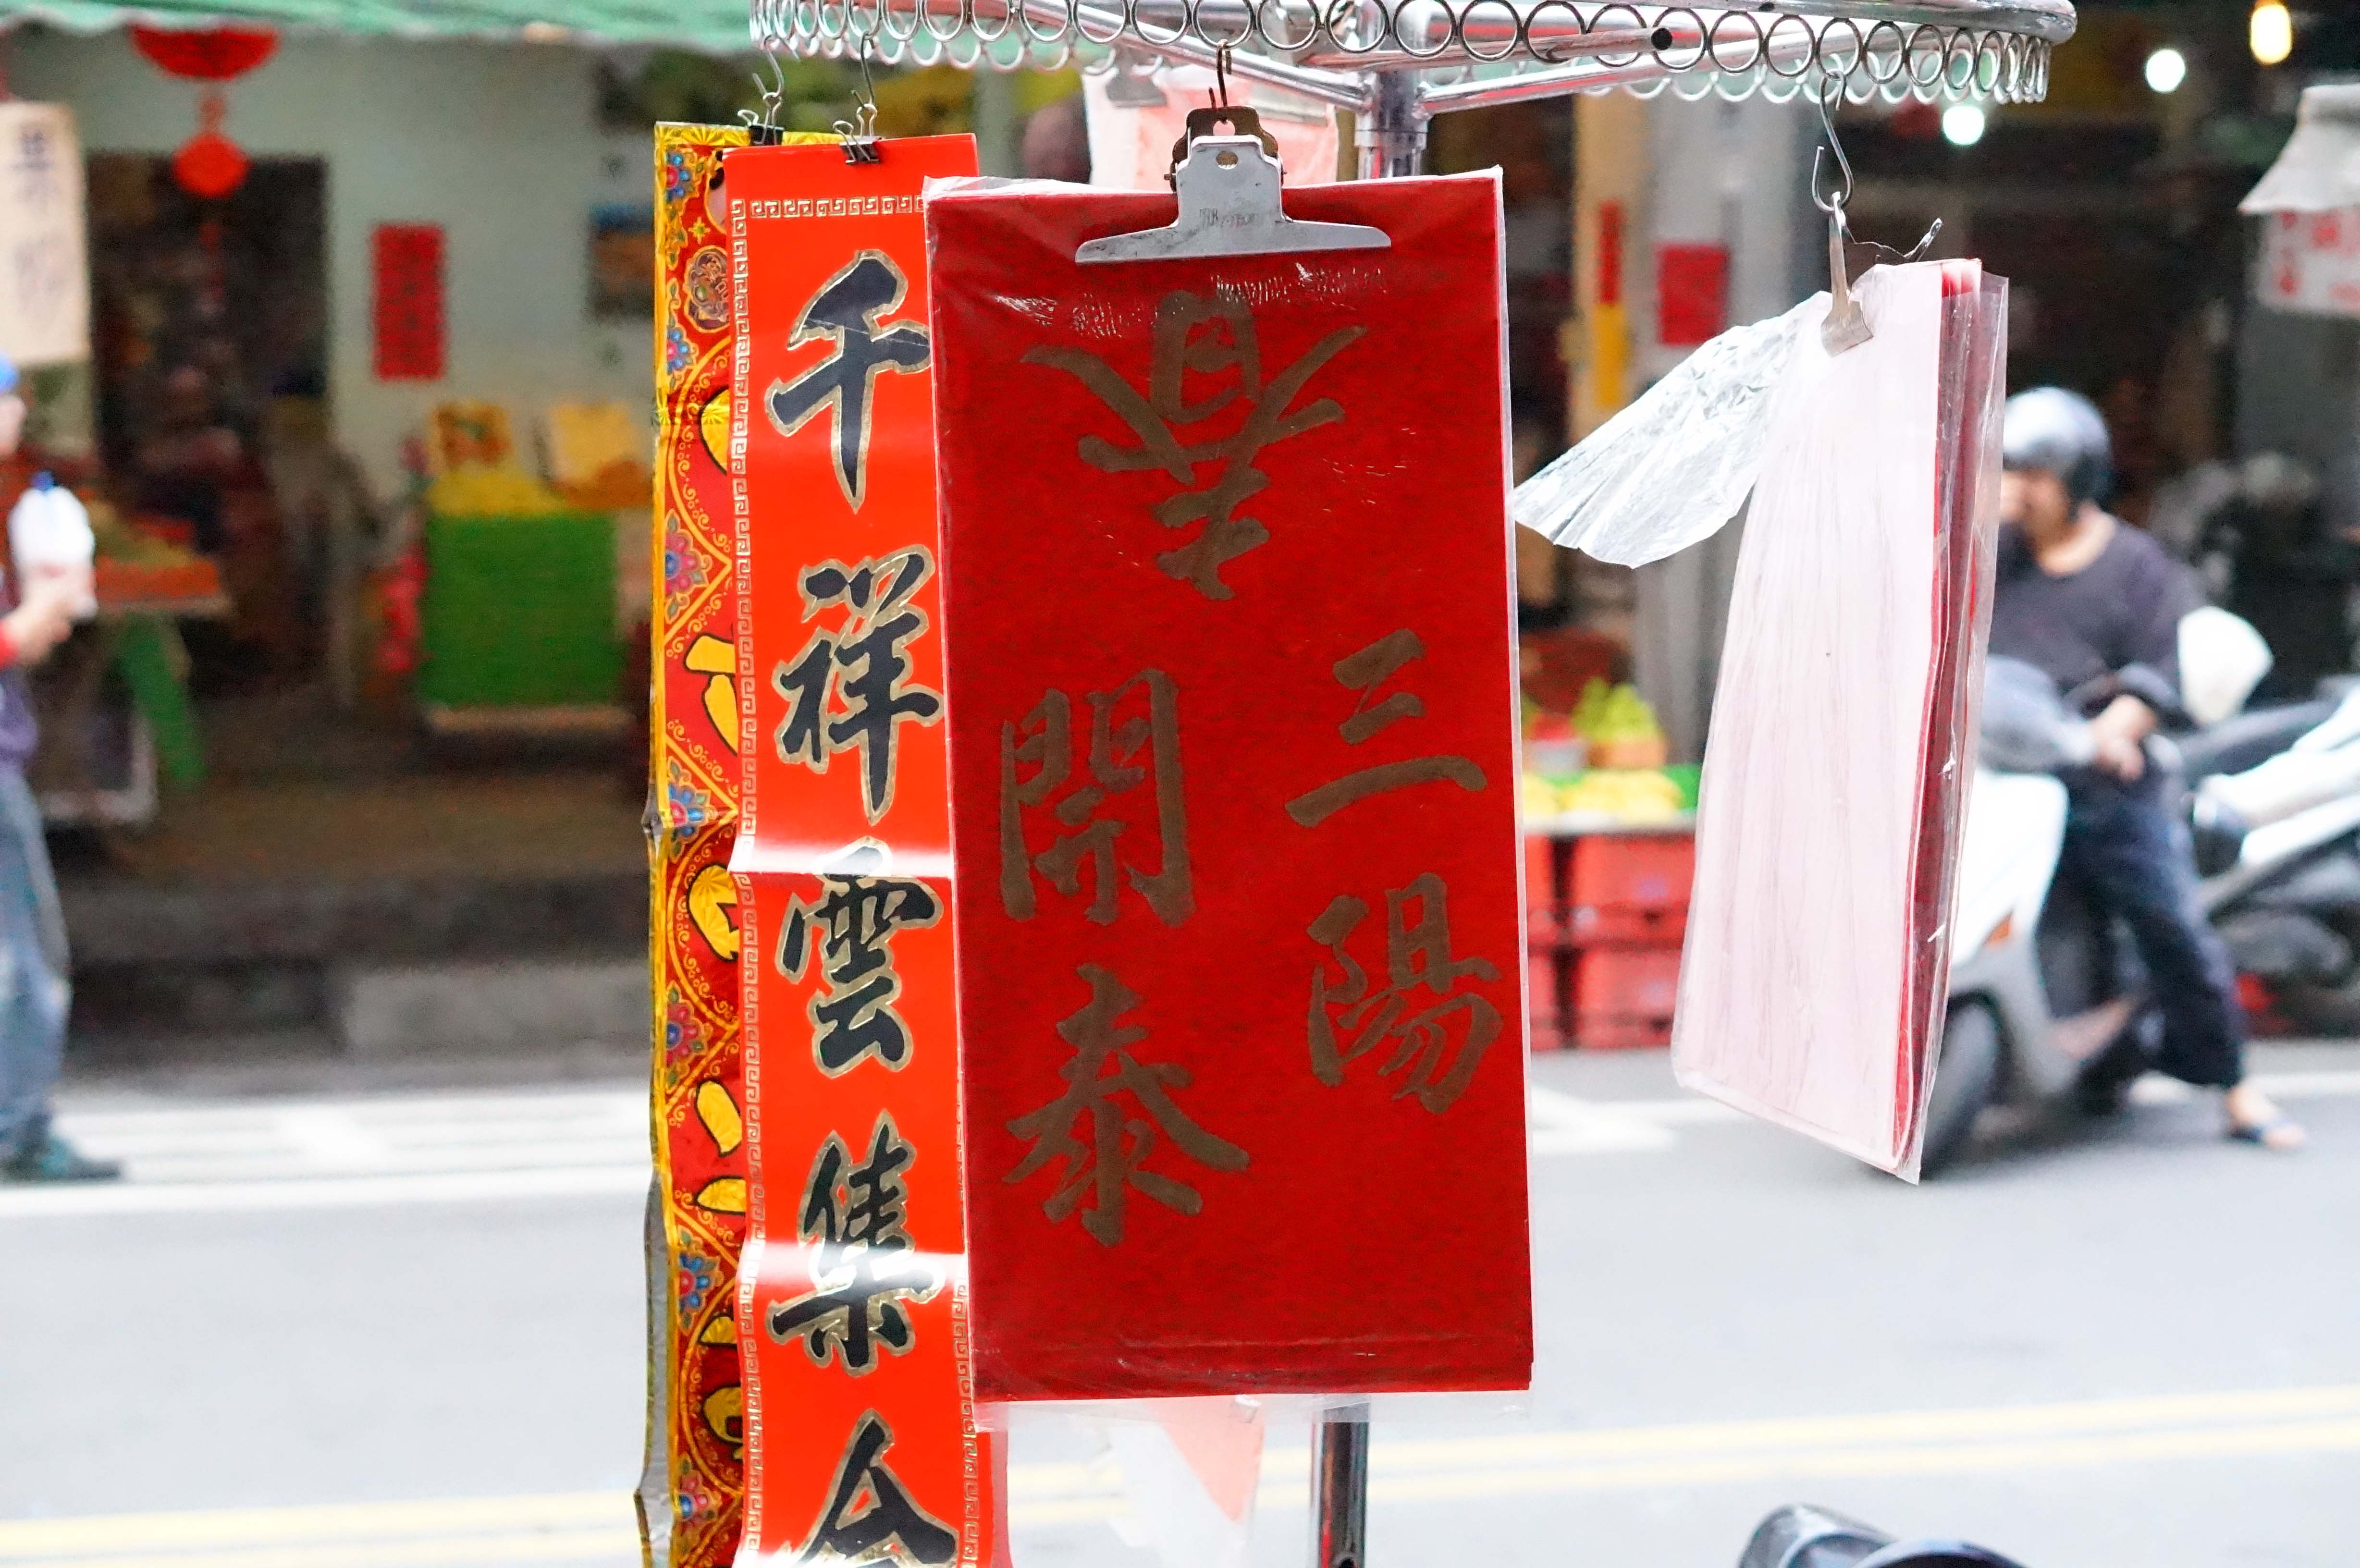 千祥雲集
春
三陽
開泰